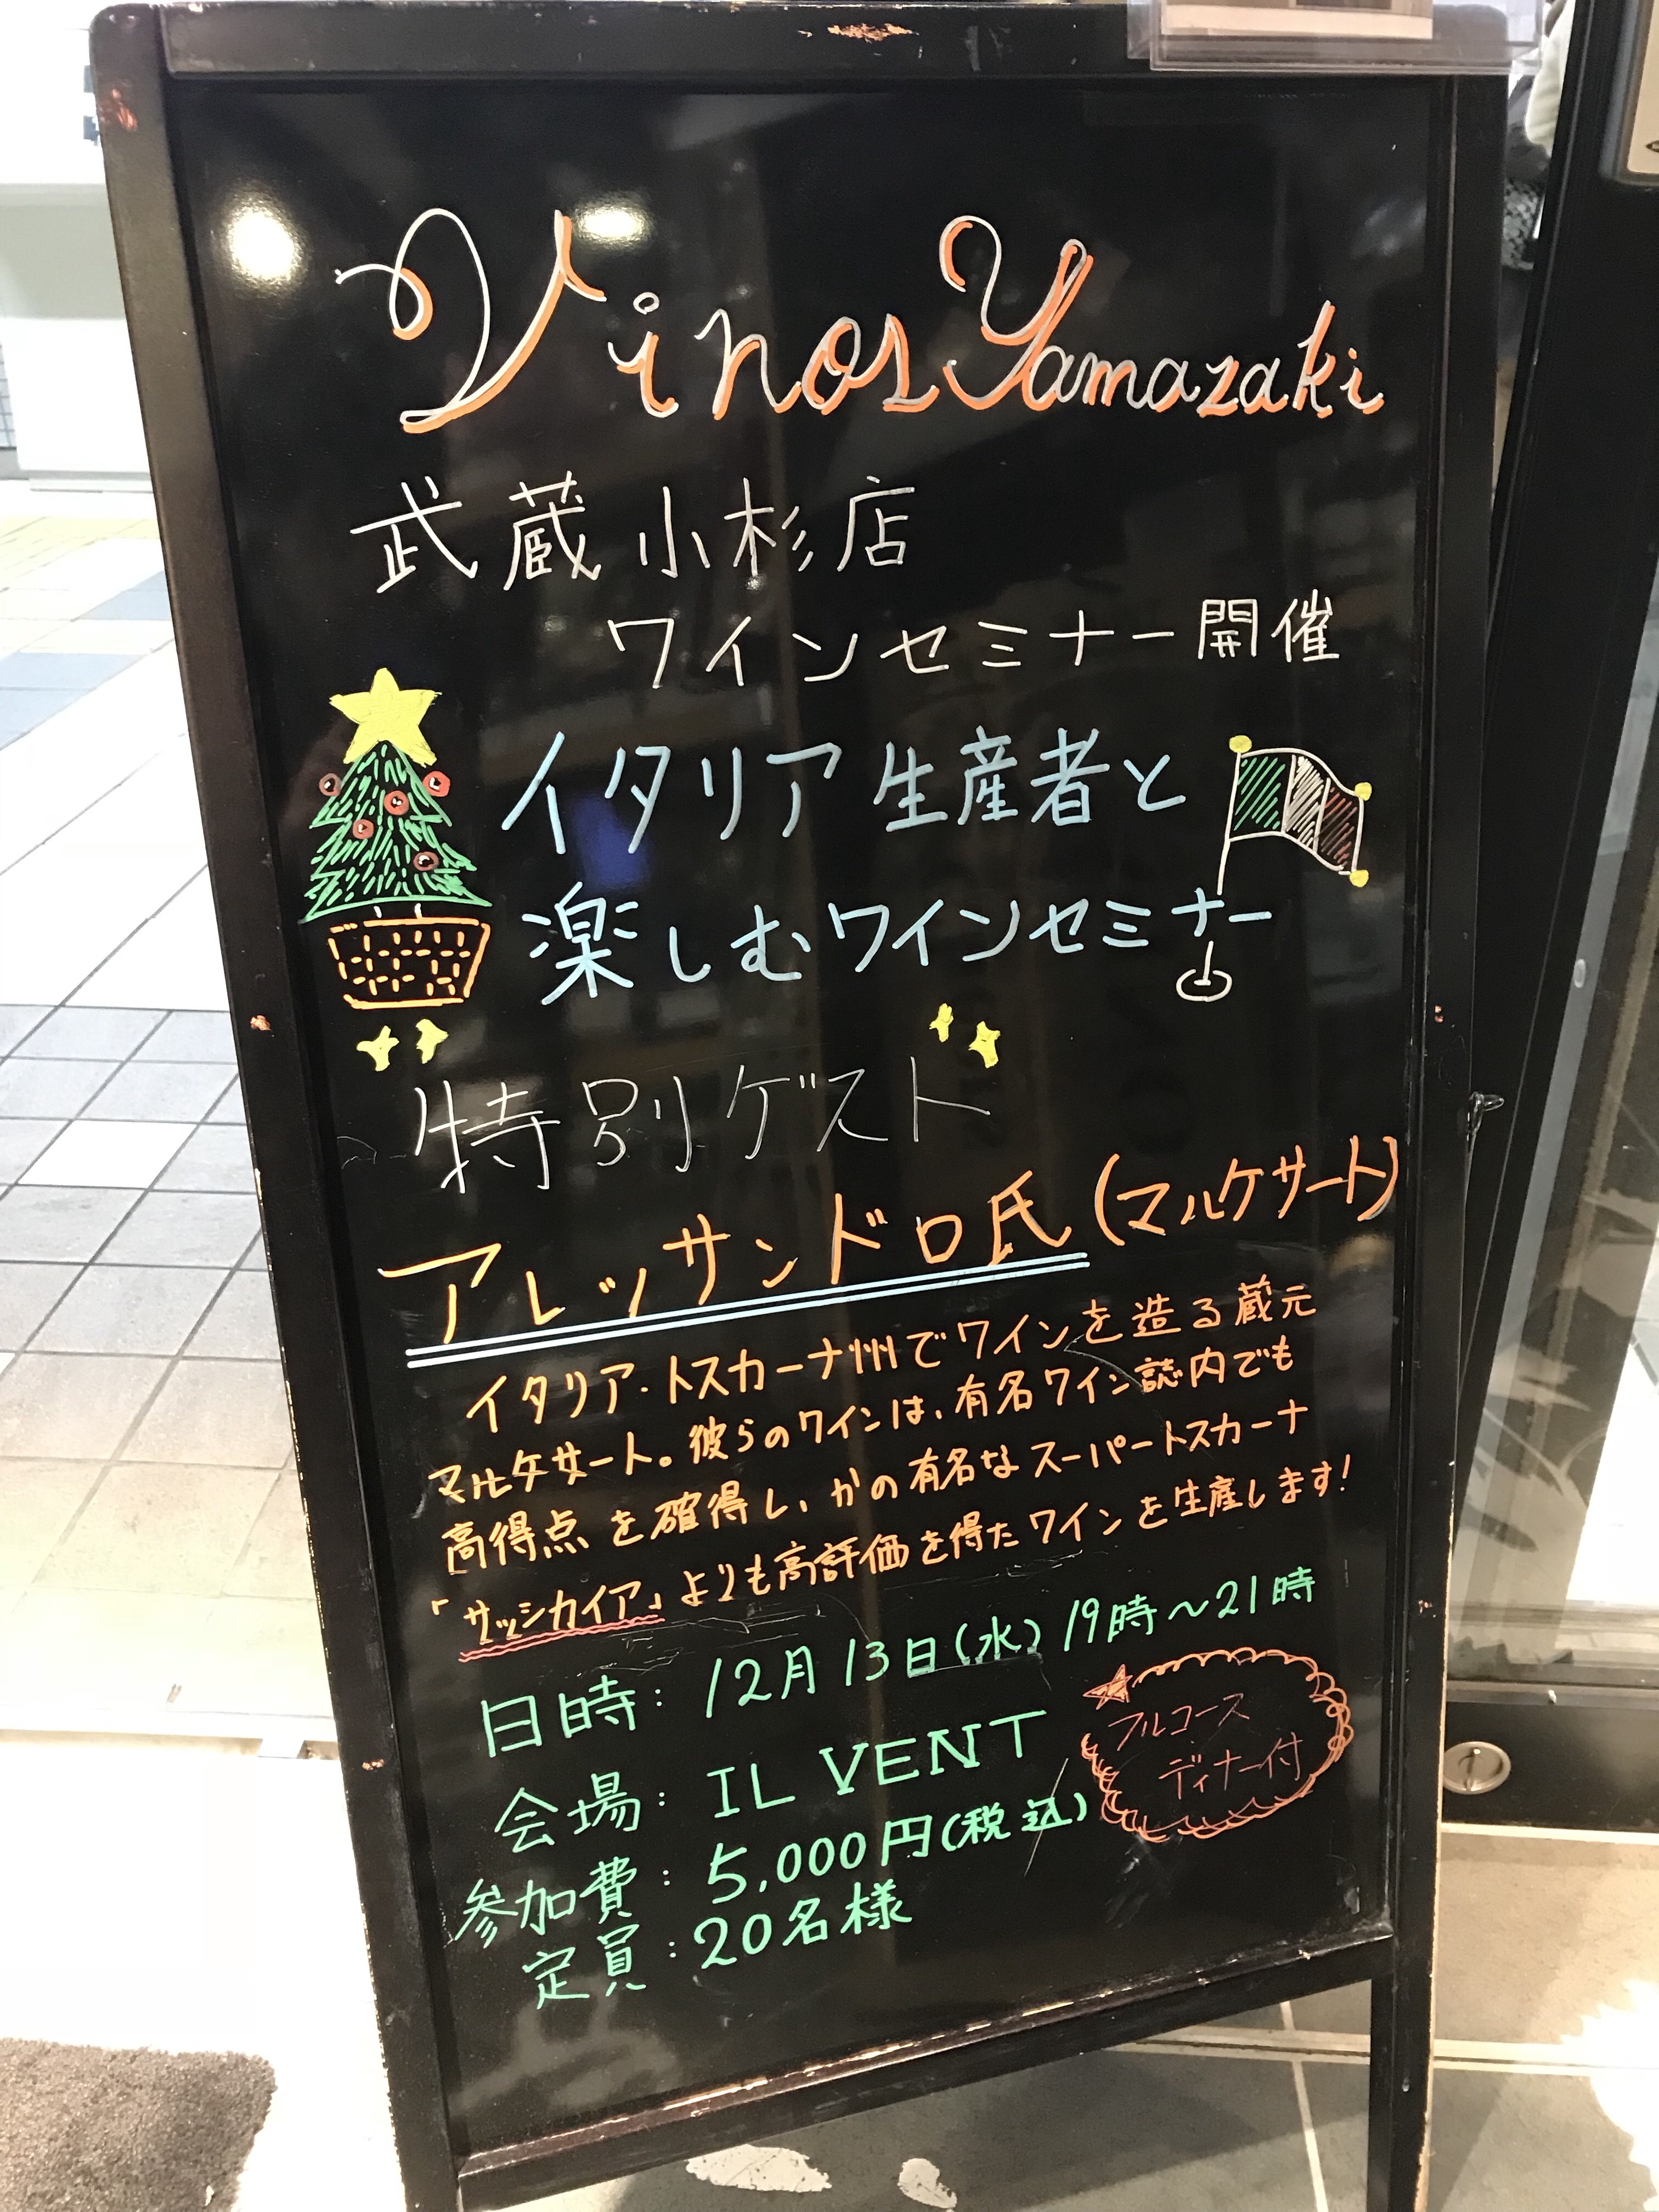 Vinos Yamazaki
武蔵小杉店
ワインセミナー開催
イタリア生産者と
楽しむワインセミナー
特別ゲスト
アレッサンドロ氏(マルケサート)
イタリア・トスカーナ州でワインを造る蔵元
マルケサート。彼らのワインは、有名ワイン誌内でも
高得点を確得し、かの有名なスーパートスカーナ
「サッシカイア」よりも高評価を得たワインを生産します!
日時:12月13日(水)19時~21時
会場:IL VENT
フルコース
ディナー付
参加費:5,000円(税込)
定員:20名様